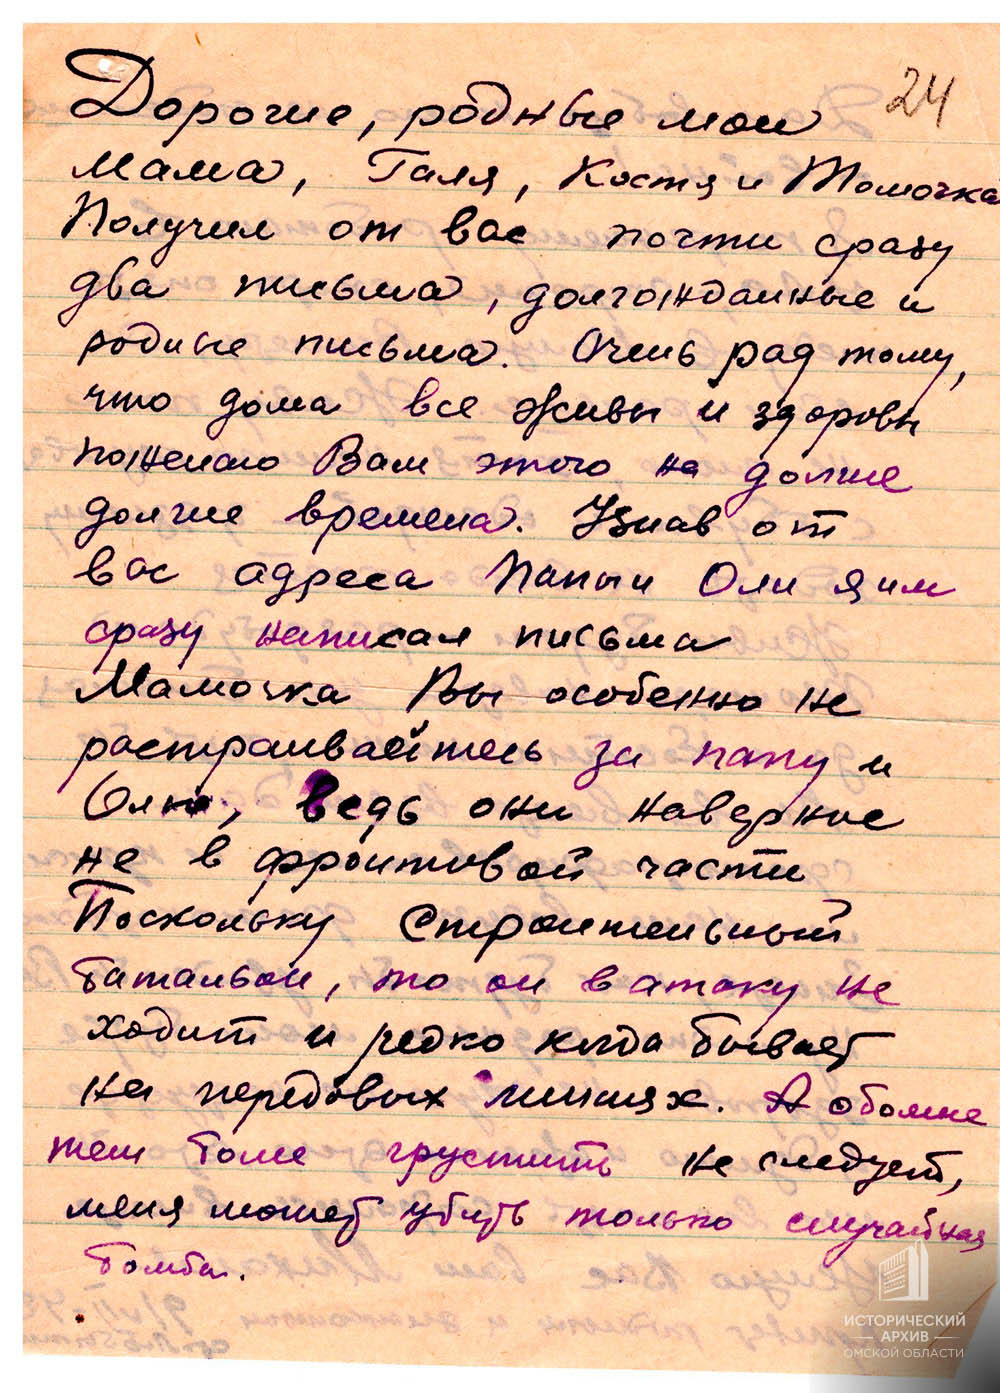 24
Дорогие, родные мои
мама, Галя, Костя и Томочка
Получил от вас почти сразу
два письма, долгожданные и
родные письма. Очень рад тому,
что дома все живы и здоровы
пожелаю Вам этого, на долгие
долгие времена. Узнав от
вас адреса папы и Оли я им
сразу написал письма
Мамочка Вы особенно не
растраивайтесь за папу и
Олю, ведь они наверное
не в фронтовой части
Поскольку строительный
батальон, то он в атаку не
ходит и редко когда бывает
на передовых линиях. А обо мне
тем более грустить не следует,
меня может убить только случайная
бомба.
ИСТОРИЧЕСКИЙ
АРХИВ
ОМСКОЙ ОБЛАСТИ